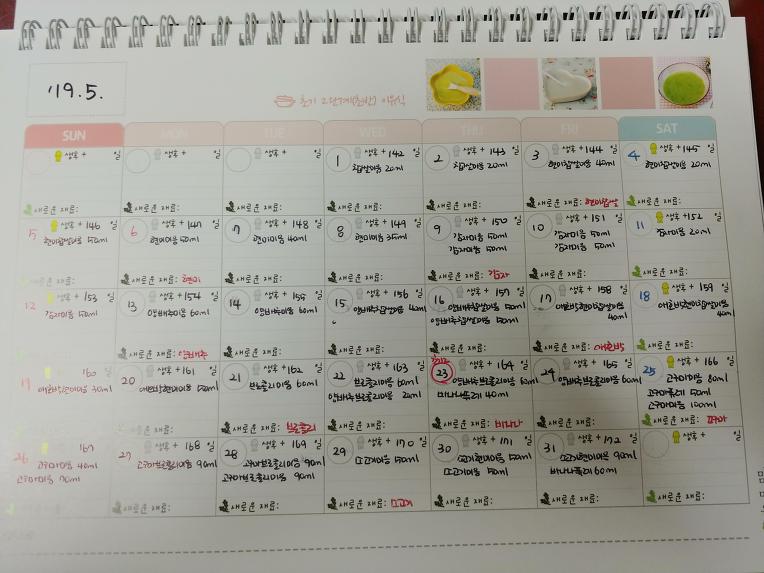 '19. 5.
초기 2단계(초반) 이유식
SUN MON TUE WED THU FRI SAT
생후 + 일
생후 + 일
생후 + 일
1 생후 + 142 일
찹쌀미음 20ml
새로운 재료:
2 생후 + 143 일
찹쌀미음 20ml
새로운 재료:
3 생후 + 144 일
현미찹쌀미음 40ml
새로운 재료: 현미찹쌀
4 생후 + 145 일
현미찹쌀미음 20ml
새로운 재료:
5 생후 + 146 일
현미찹쌀미음 50ml
새로운 재료:
6 생후 + 147 일
현미미음 50ml
새로운 재료: 현미
7 생후 + 148 일
현미미음 40ml
새로운 재료:
8 생후 + 149 일
현미미음 35ml
새로운 재료:
9 생후 + 150 일
감자미음 50ml
감자미음 50ml
새로운 재료: 감자
10 생후 + 151 일
감자미음 50ml
감자미음 50ml
새로운 재료:
11 생후 + 152 일
감자미음 20ml
새로운 재료:
12 생후 + 153 일
감자미음 50ml
13 생후 + 154 일
양배추미음 60ml
새로운 재료: 양배추
14 생후 + 155 일
양배추미음 60ml
새로운 재료:
15 생후 + 156 일
양배추찹쌀미음 40ml
새로운 재료:
16 생후 + 157 일
양배추찹쌀미음 50ml
양배추찹쌀미음 50ml
새로운 재료:
17 생후 + 158 일
애호박현미찹쌀미음 40ml
새로운 재료: 애호박
18 생후 + 159 일
애호박현미찹쌀미음 40ml
새로운 재료:
19 160 일
애호박현미미음 30ml
20 생후 + 161 일
애호박현미미음 50ml
새로운 재료:
21 생후 + 162 일
브로콜리미음 60ml
새로운 재료: 브로콜리
22 생후 + 163 일
브로콜리미음 60ml
양배추브로콜리미음 20ml
새로운 재료:
23 생후 + 164 일
양배추브로콜리미음 60ml
바나나퓨레 40ml
새로운 재료: 바나나
24 생후 + 165 일
양배추브로콜리미음 60ml
새로운 재료:
25 생후 + 166 일
고구마미음 80ml
고구마퓨레 50ml
고구마미음 100ml
새로운 재료: 고구마
26 167 일
고구마미음 40ml
고구마미음 70ml
27 생후 + 168 일
고구마브로콜리미음 90ml
새로운 재료:
28 생후 + 169 일
고구마브로콜리미음 90ml
고구마브로콜리미음 90ml
새로운 재료:
29 생후 + 170 일
쇠고기미음 50ml
새로운 재료: 쇠고기
30 생후 + 171 일
쇠고기현미미음 50ml
쇠고기미음 50ml
새로운 재료:
31 생후 + 172 일
쇠고기현미미음 90ml
바나나퓨레 60ml
새로운 재료:
생후 + 일
새로운 재료: